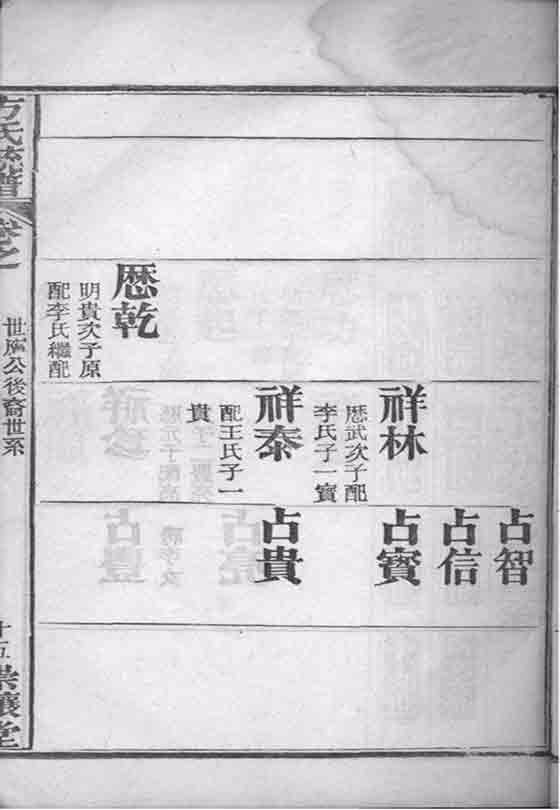 占智
占信
祥林
歷武次子配
李氏子一寶
占寳
祥泰
配王氏子一
貴
占貴
歷乾
明貴次子原
配李氏繼配
方氏統譜
卷之
世廣公後裔世系
十五
崇讓堂